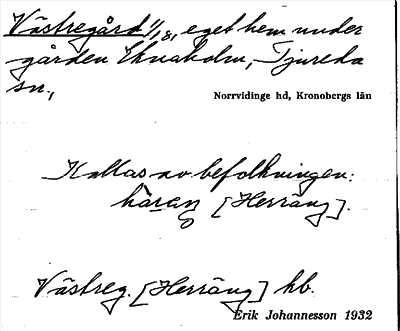 Västregård 1/1, 8, eget hem under
gården Eknaholm, Tjureda
sn,
Norrvidinge hd, Kronobergs län
Kallas av befolkningen:
häraŋ [Herräng].
Västreg. [Herräng] hb.
Erik Johannesson 1932